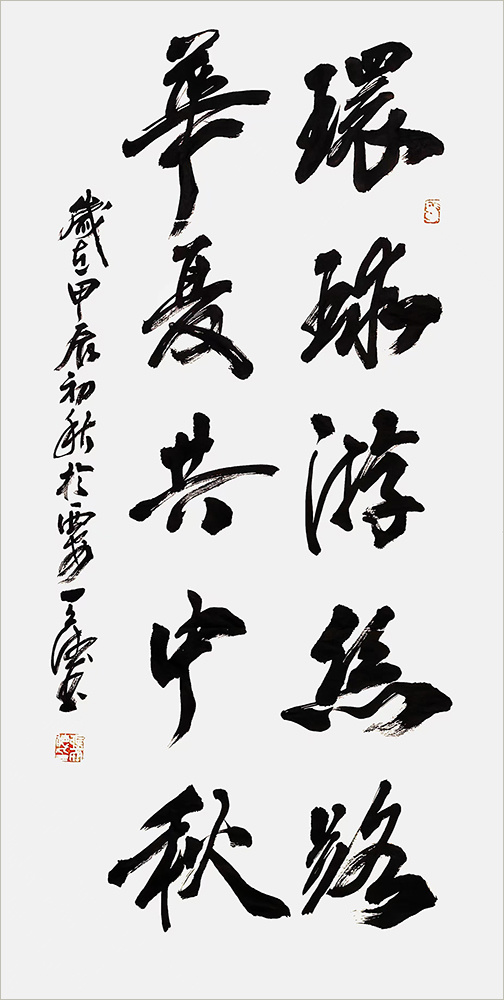 環球游絲路
華夏共中秋
歲在甲辰初秋於西安